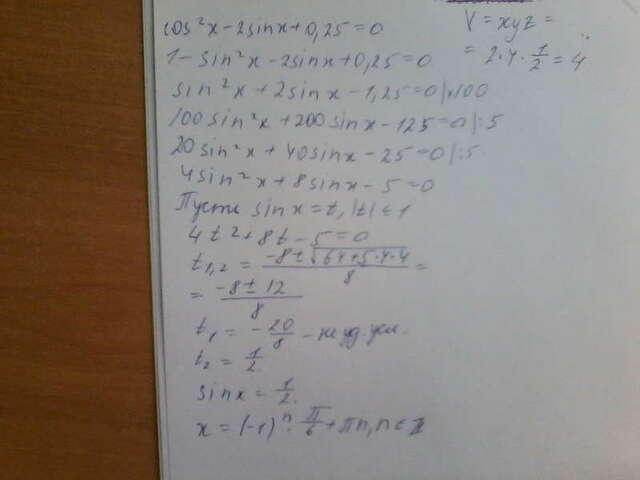 cos²x - 2sinx + 0,25 = 0
1 - sin²x - 2sinx + 0,25 = 0
sin²x + 2sinx - 1,25 = 0 | ×100
100sin²x + 200sinx - 125 = 0 | : 5
20sin²x + 40sinx - 25 = 0 | : 5
4sin²x + 8sinx - 5 = 0
Пусть sinx = t, |t| ≤ 1
4t² + 8t - 5 = 0
t₁,₂ = (-8 ± √(64 + 5·4·4)) / 8 =
= (-8 ± 12) / 8
t₁ = -20/8 - не уд. усл.
t₂ = 1/2.
sinx = 1/2.
x = (-1)ⁿ · π/6 + πn, n ∈ Z
V = xyz =
= 2·4·1/2 = 4